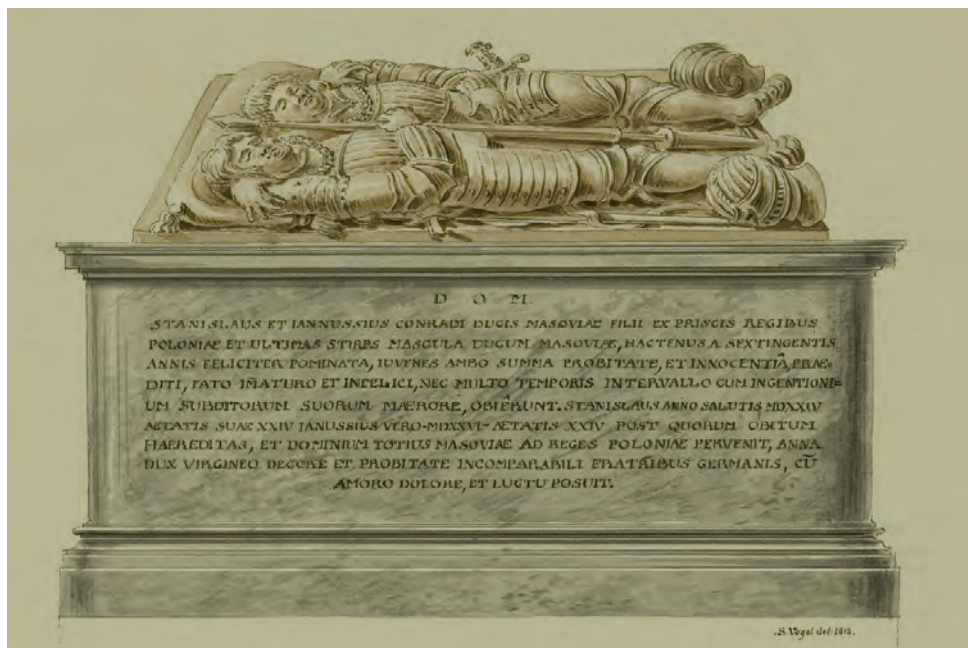 D O M
STANISLAUS ET IANNUSSIUS CONRADI DUCIS MASOVIAE FILII EX PRISCIS REGIBUS
POLONIAE ET ULTIMAS STIRPS MASCULA DUCUM MASOVIÆ, HACTENUS A SEXTINGENTIS
ANNIS FELICITER POMINATA, IUVENES AMBO SUMMA PROBITATE, ET INNOCENTIÂ, PRAE=
DITI, FATO IM̃ATURO ET INFELICI, NEC MULTO TEMPORIS INTERVALLO CUM INGENTIONI=
UM SUBDITORUM SUORUM MÆRORE, OBIÊRUNT. STANISLAUS ANNO SALUTIS MDXXIV
AETATIS SUAE XXIV IANUSSIUS VERO-MDXXVI-AETATIS XXIV POST QUORUM OBITUM
HAEREDITAS, ET DOMINIUM TOTIUS MASOVIAE AD REGES POLONIAE PERVENIT, ANNA
DUX VIRGINEO DECORE ET PROBITATE INCOMPARABILI FRATRIBUS GERMANIS, CŨ
AMORO DOLORE, ET LUCTU POSUIT.
S. Vogel del: 1815.